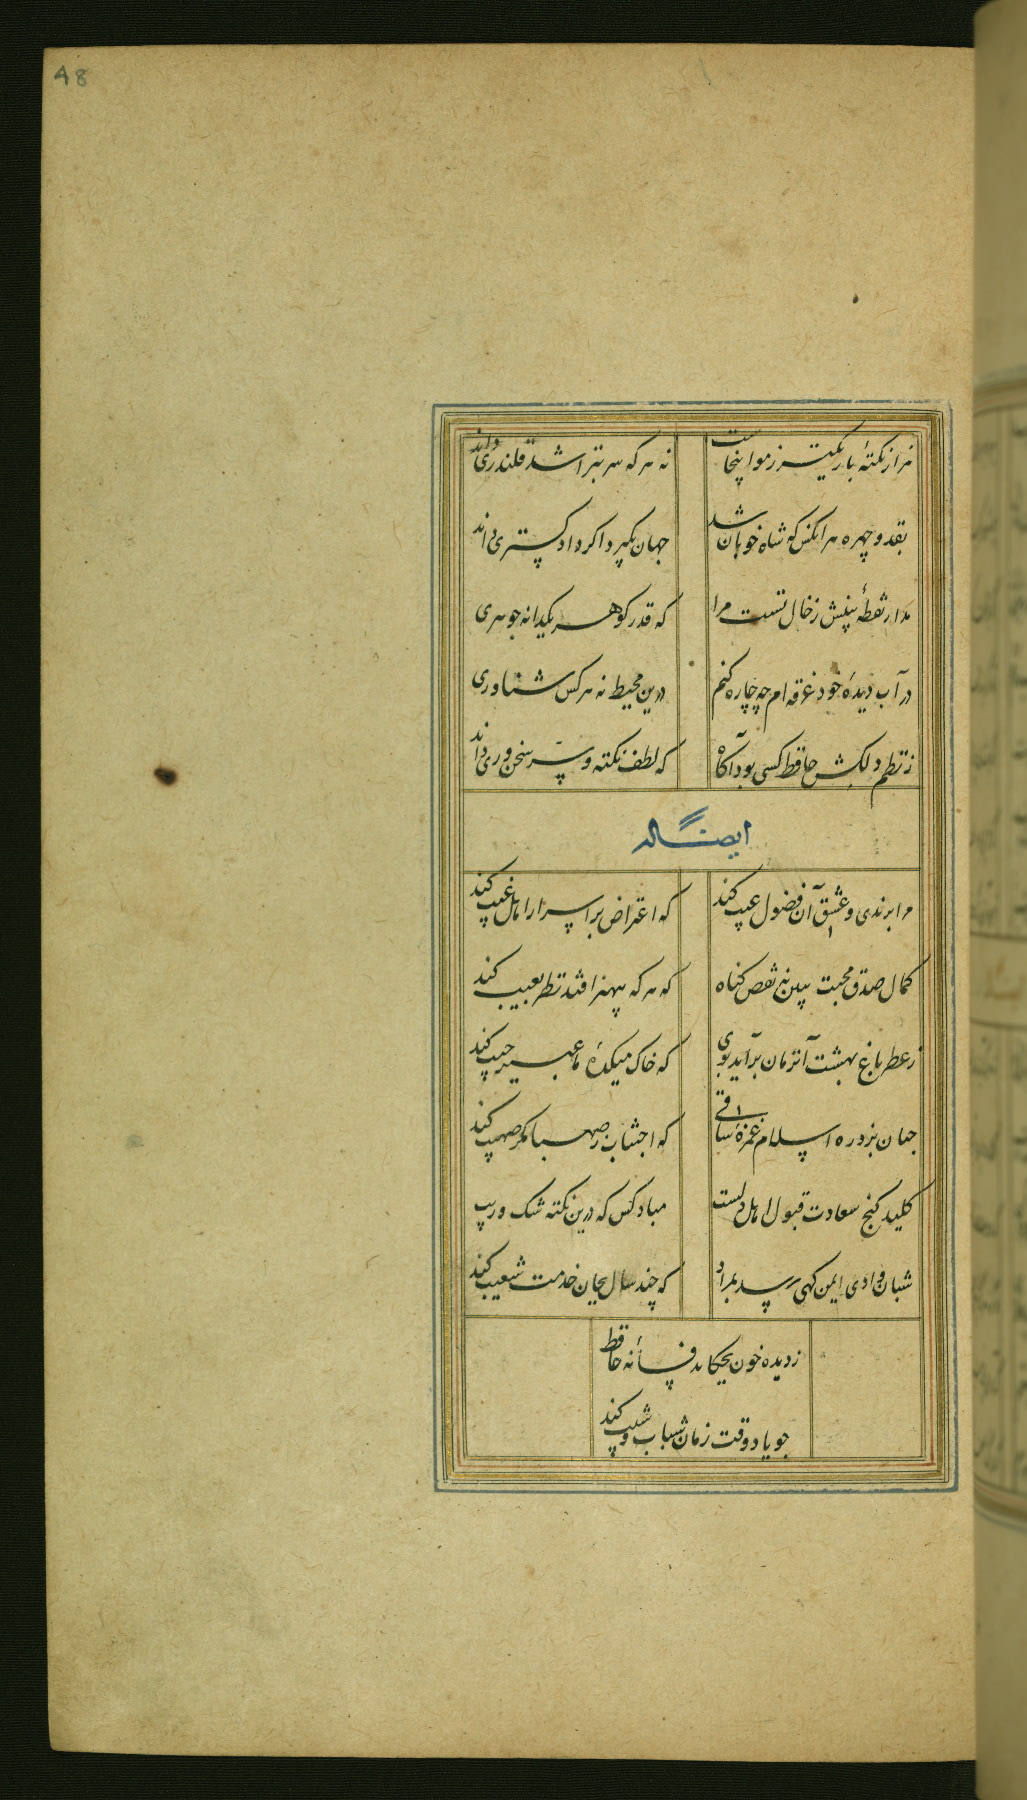 48
هزار نکتهٔ باریکتر ز مو اینجاست
نه هر که سر بتراشد قلندری داند
بقد و چهره هر انکس که شاه خوبان شد
جهان بگیرد اگر دادگستری داند
مدار نقطهٔ بینش ز خال تست مرا
که قدر گوهر یکدانه جوهری
در آب دیدهٔ خود غرقه‌ام چه چاره کنم
درین محیط نه هر کس شناوری
ز نظم دلکش حافظ کسی بود آگاه
که لطف نکته و سر سخن‌وری داند
ایضا له
مرا برندی و عشق آن فضول عیب کند
که اعتراض بر اسرار اهل غیب کند
کمال صدق محبت ببین نه نقص گناه
که هر که بیهنر افتد نظر بعیب کند
ز عطر باغ بهشت آنزمان برآید بوی
که خاک میکدهٔ ما عبیر جیب کند
چنان بزد ره اسلام غمزهٔ ساقی
که اجتناب ز صهبا مگر صهیب کند
کلید گنج سعادت قبول اهل دلست
مباد کس که درین نکته شک و ریب
شبان وادی ایمن گهی رسد بمراد
که چند سال بجان خدمت شعیب کند
ز دیده خون بچکاند فسانهٔ حافظ
چو یاد وقت زمان شباب و شیب کند